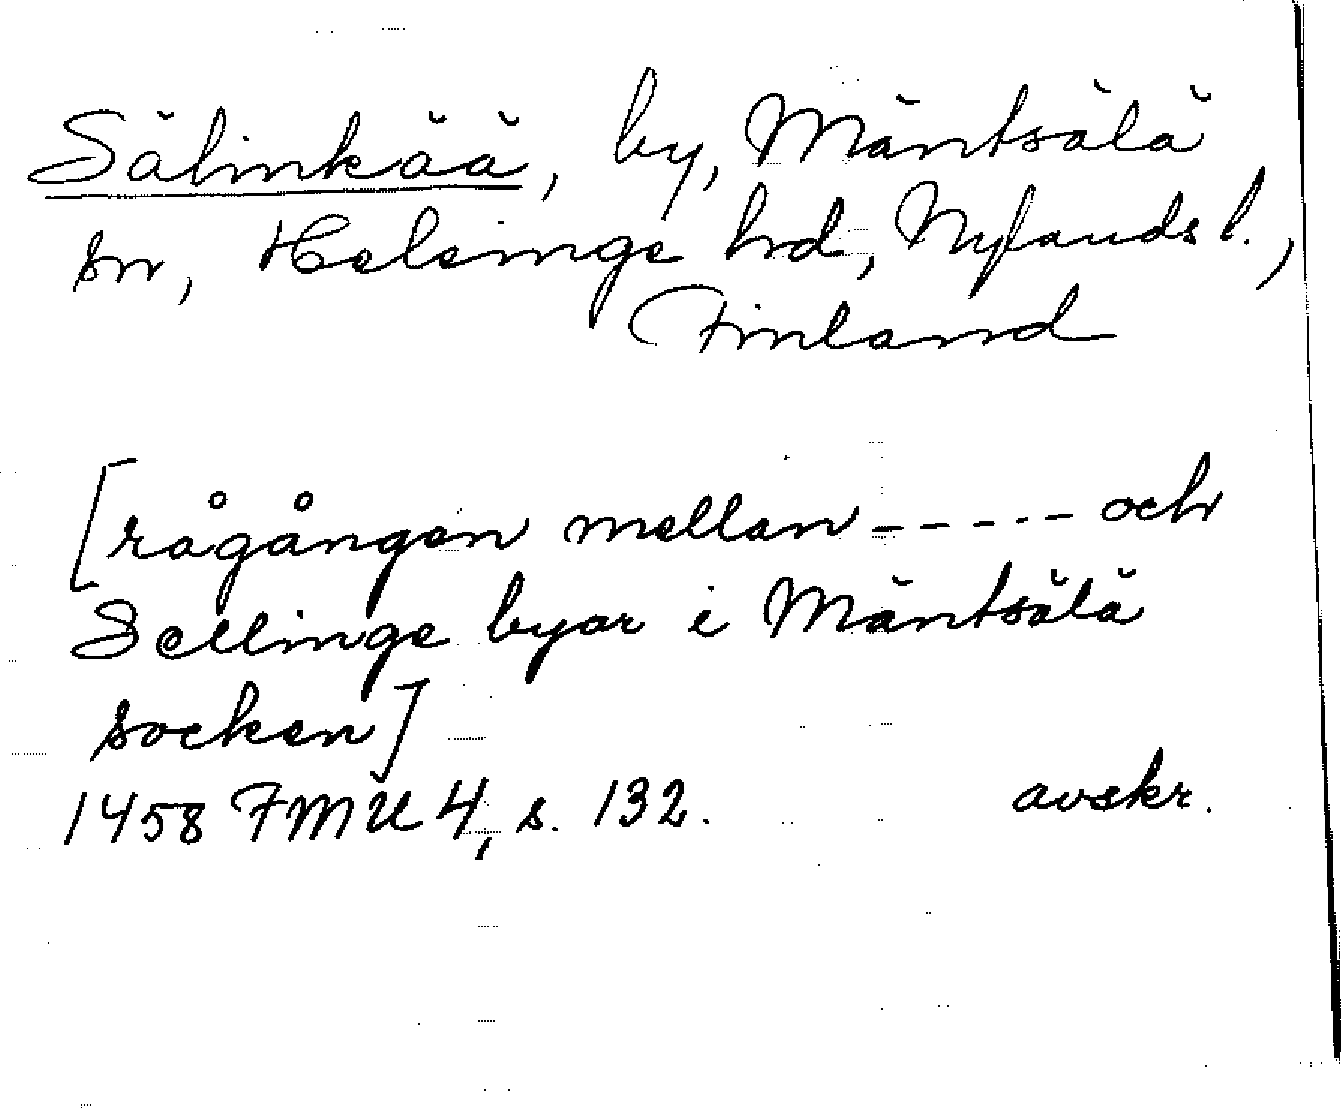 Sälinkää, by, Mäntsälä
sn, Helsinge hd, Nylands l.,
Finland
[rågången mellan ----- och
Sellinge byar i Mäntsälä
socken]
1458 FMU 4, s. 132. avskr.